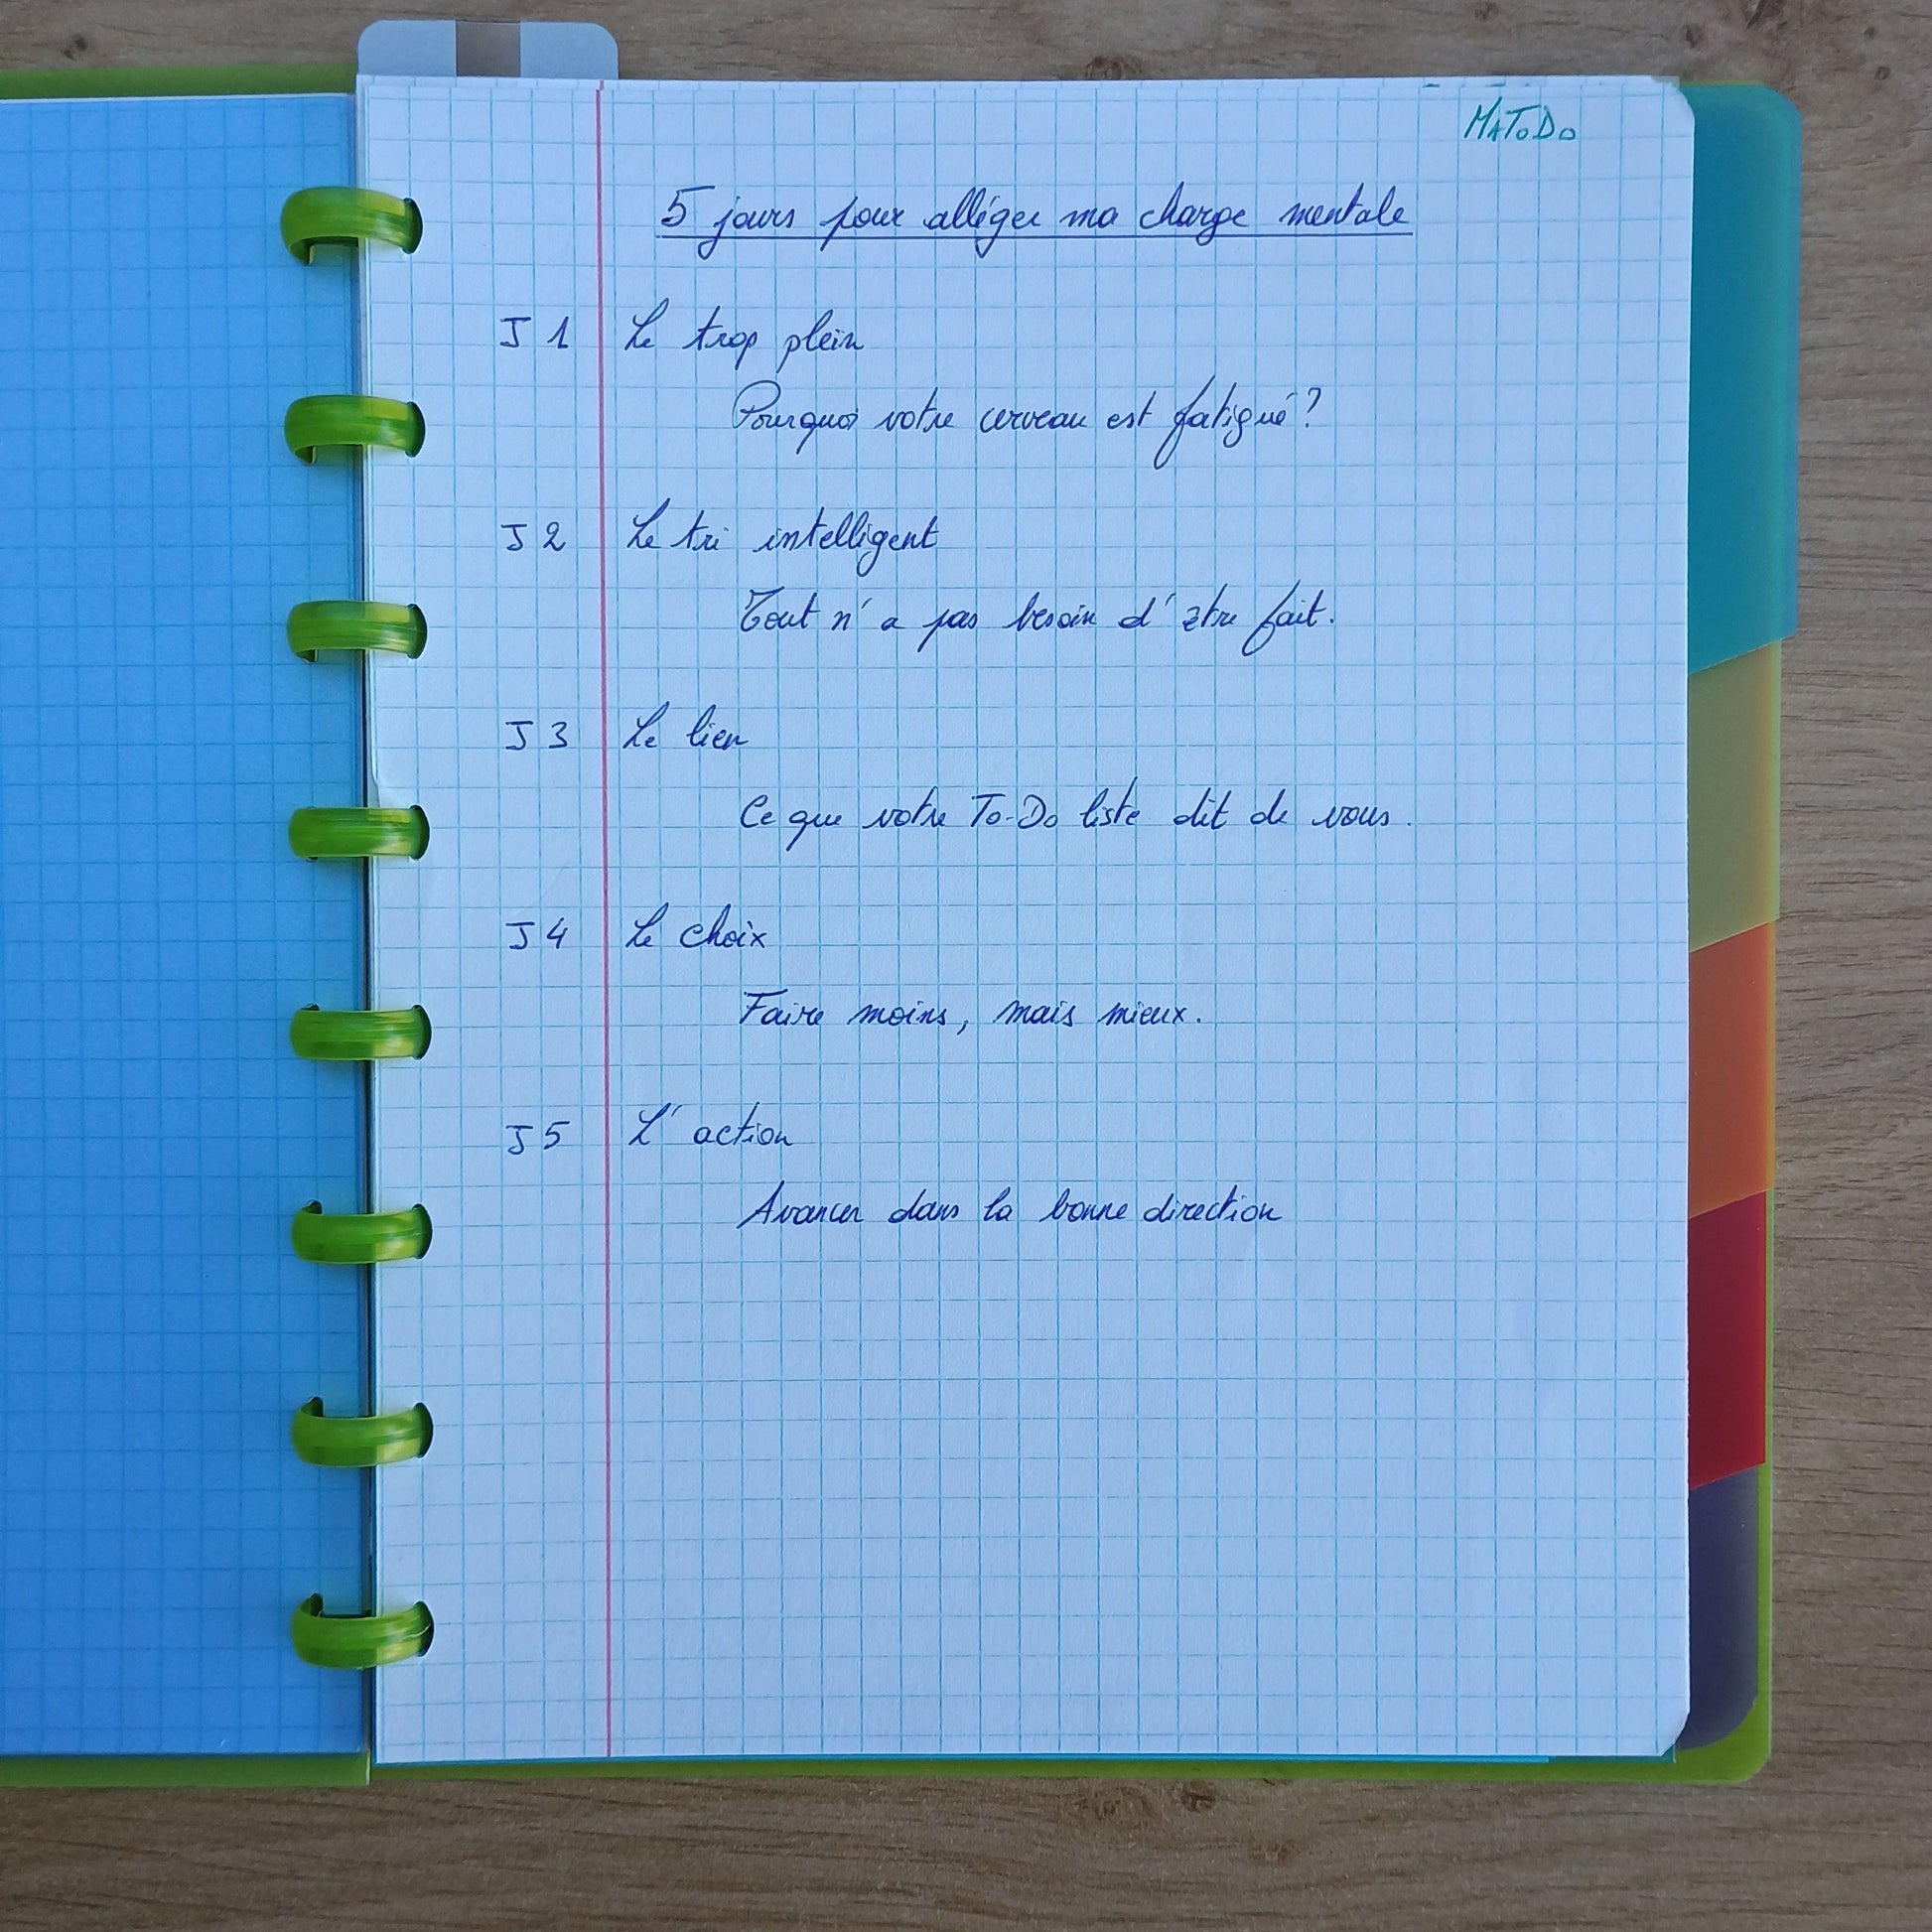 MATODO
5 jours pour alléger ma charge mentale
J1 Le trop plein
Pourquoi votre cerveau est fatigué?
J2 Le tri intelligent
Tout n'a pas besoin d'être fait.
J3 Le lien
Ce que votre To-Do liste dit de vous.
J4 Le choix
Faire moins, mais mieux.
J5 L'action
Avancer dans la bonne direction